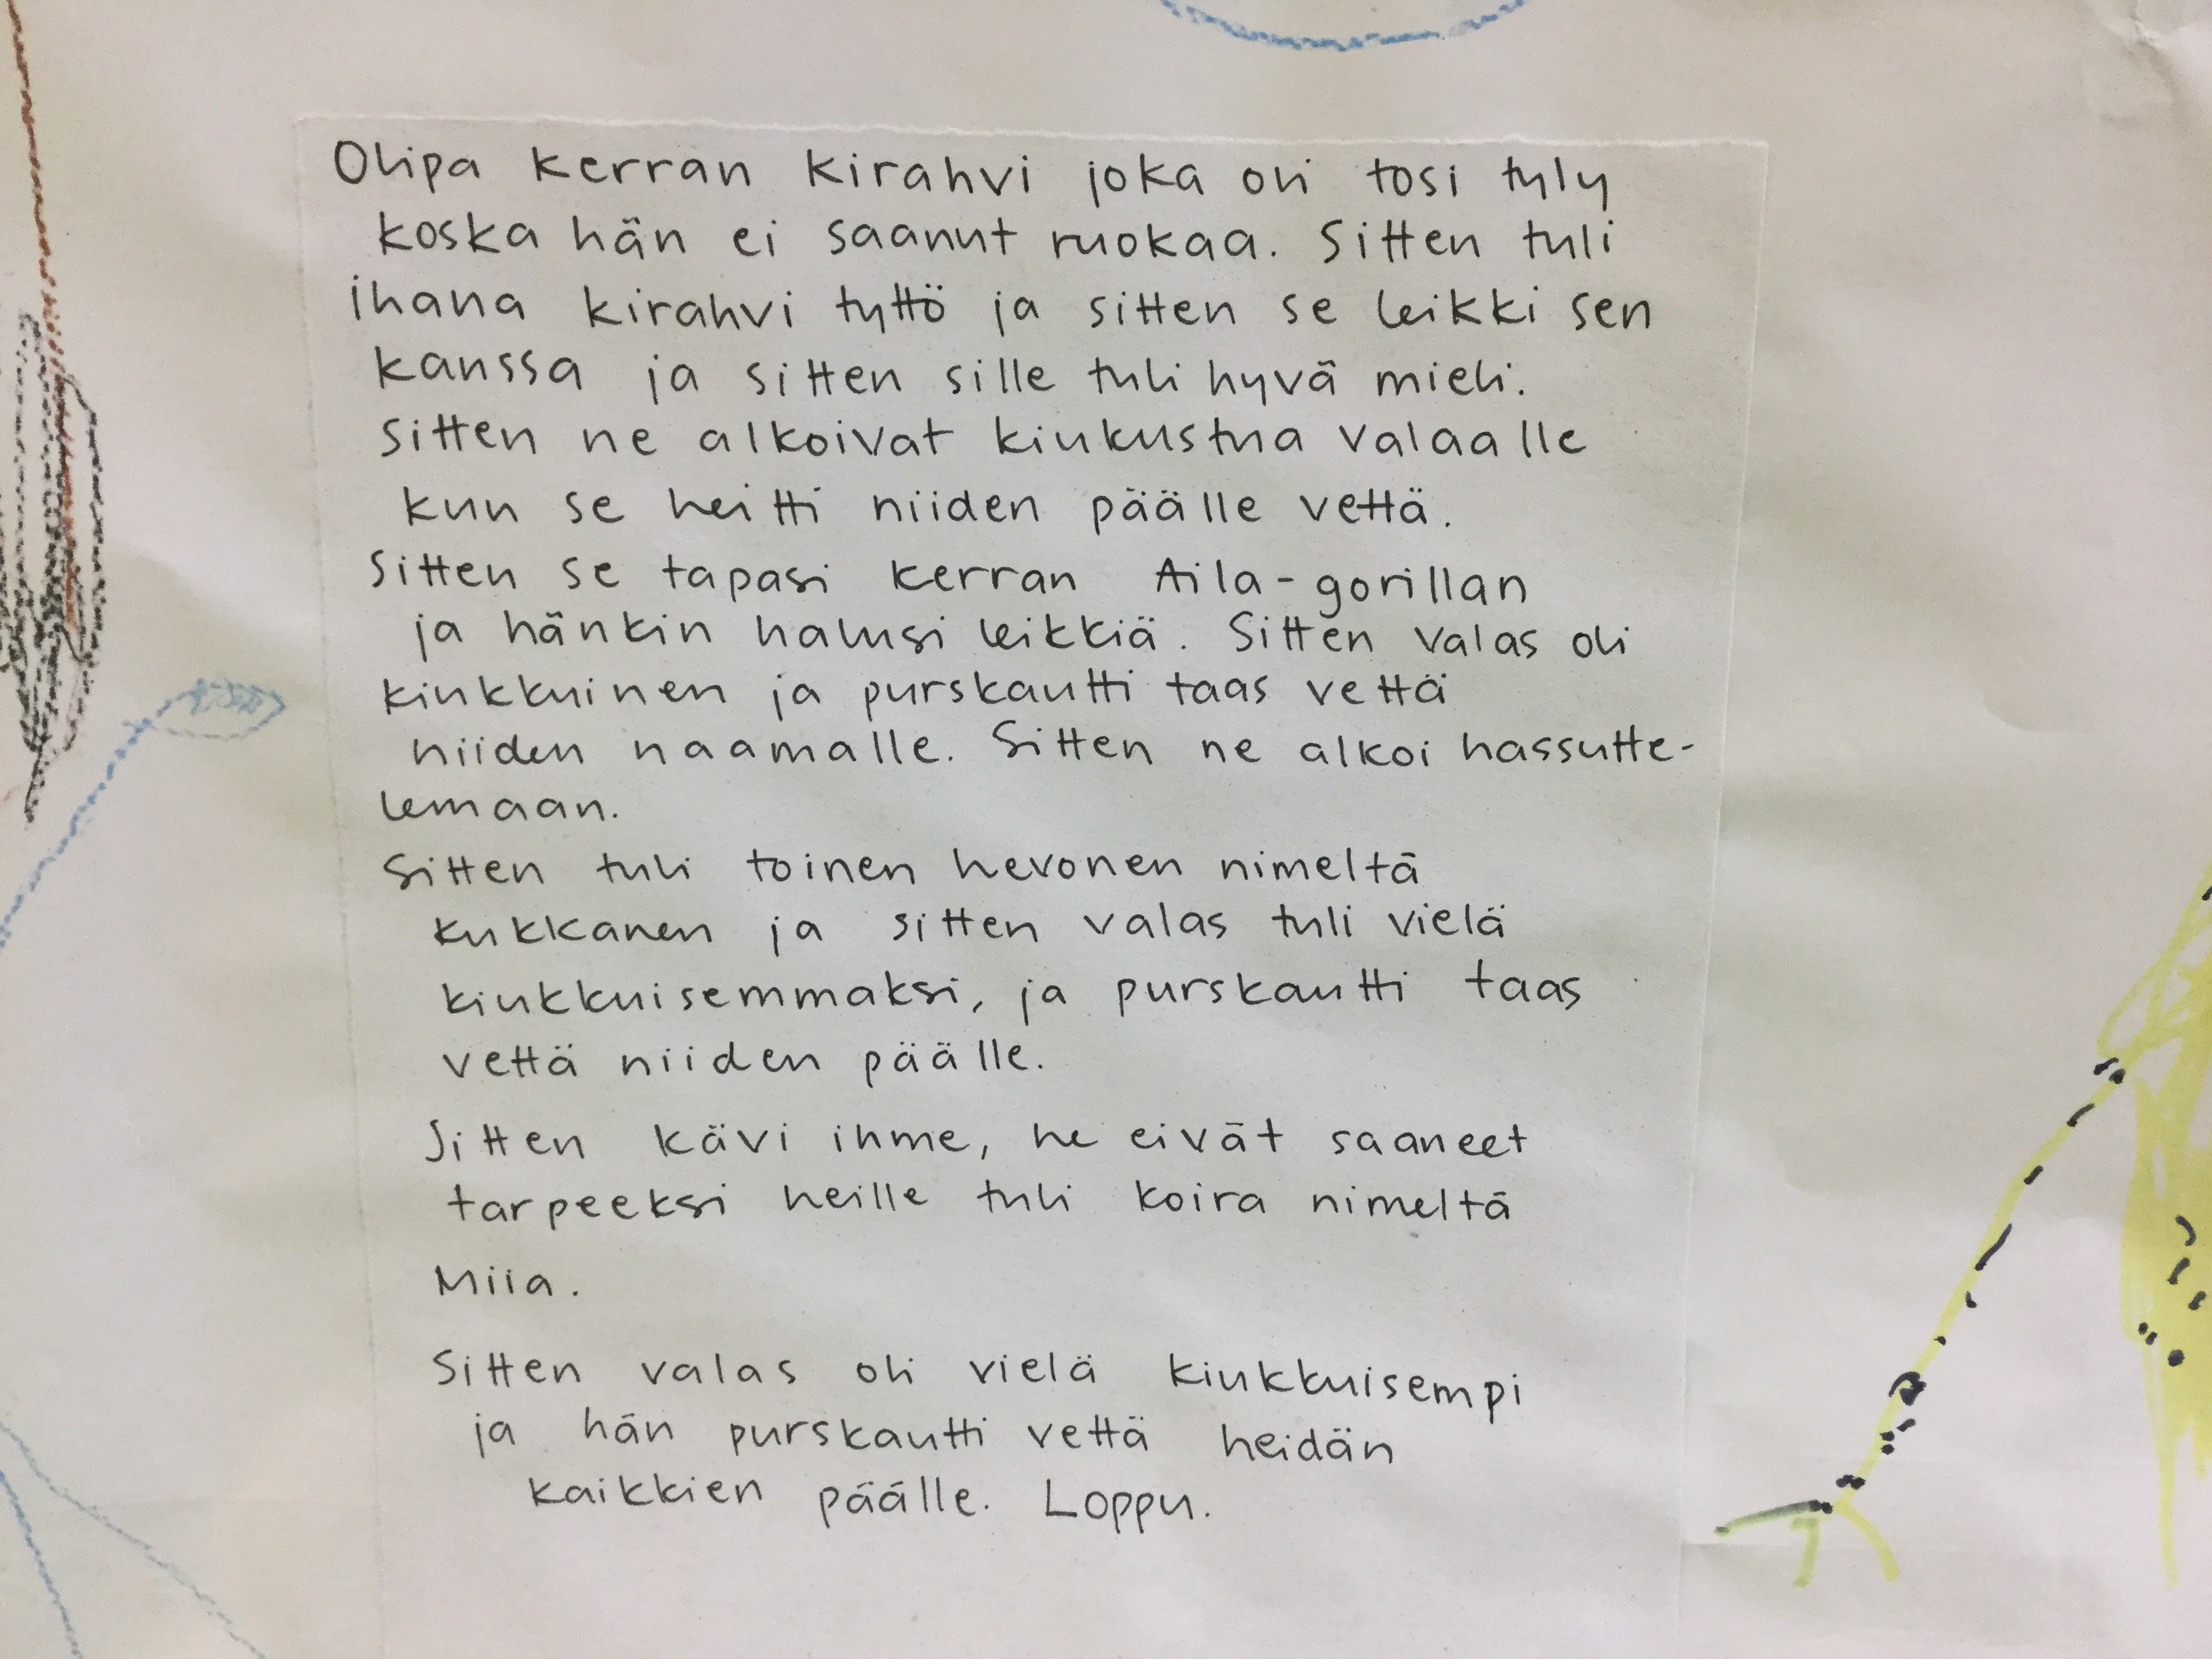 Olipa kerran kirahvi joka oli tosi tyly
koska hän ei saanut ruokaa. Sitten tuli
ihana kirahvi tyttö ja sitten se leikki sen
kanssa ja sitten sille tuli hyvä mieli.
Sitten ne alkoivat kiukustua valaalle
kun se heitti niiden päälle vettä.
Sitten se tapasi kerran Aila-gorillan
ja hänkin halusi leikkiä. Sitten valas oli
kiukkuinen ja purskautti taas vettä
niiden naamalle. Sitten ne alkoi hassutte-
lemaan.
Sitten tuli toinen hevonen nimeltä
Kukkanen ja sitten valas tuli vielä
kiukkuisemmaksi, ja purskautti taas
vettä niiden päälle.
Sitten kävi ihme, he eivät saaneet
tarpeeksi heille tuli koira nimeltä
Miia.
Sitten valas oli vielä kiukkuisempi
ja hän purskautti vettä heidän
kaikkien päälle. Loppu.